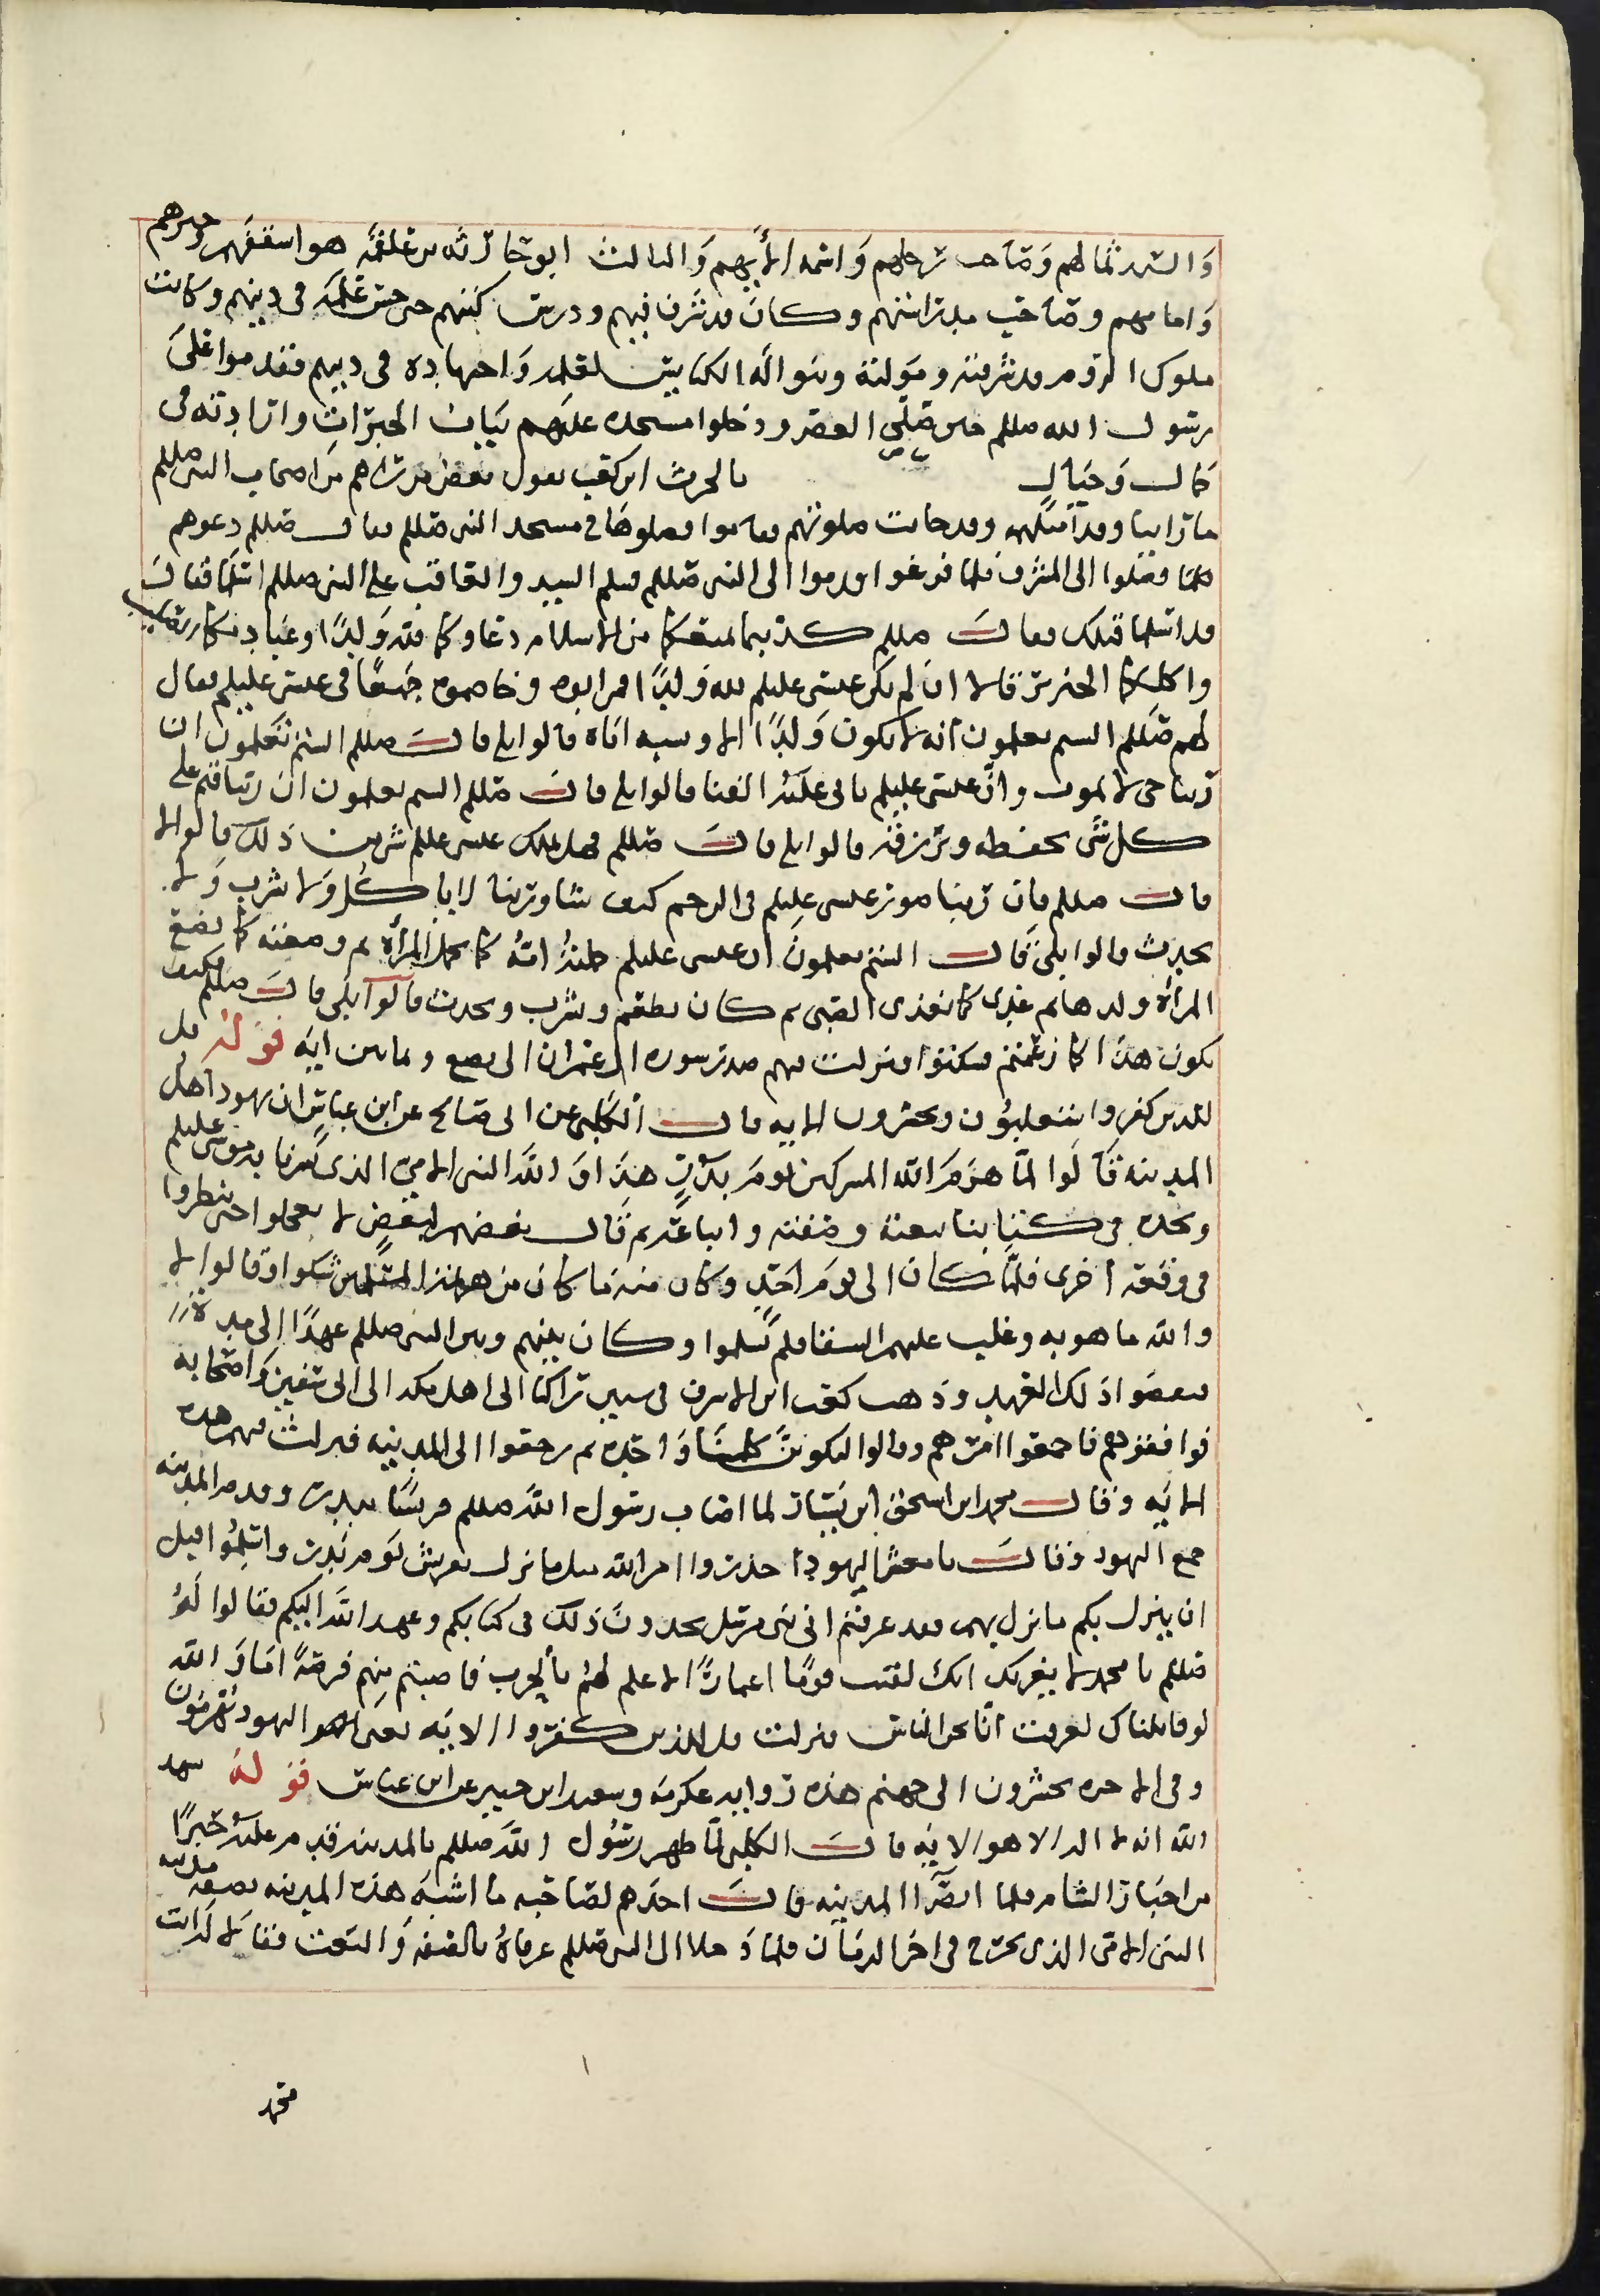 والسيد ثمالهم وصاحب رحلهم واسمه الأيهم والثالث ابو حارثه بن علقمه هو اسقفهم وحبرهم
وامامهم وصاحب مدراسهم وكان قد شرف فيهم ودرس كتبهم حتى حسن علمه في دينهم وكانت
ملوك الروم قد شرفته ومولته وبنوا له الكنايس لعلمه واجتهاده في دينهم فقدموا على
رسول الله صللم حين صلى العصر ودخلوا مسجده عليهم ثياب الحبرات واراديه في
جمال وجمال بالحرث ابن كعب يقول بعض من راهم من اصحاب النبي صللم
ما راينا وفدا مثلهم وقد حانت صلوتهم فقاموا فصلوها في مسجد النبي صللم فقال صللم دعوهم
فصلوا الى المشرق فلما فرغوا قدموا الى النبي صللم فسلم السيد والعاقب على النبي صللم اسلما فقالا
قد اسلمنا قبلك فقال صللم كذبتما يمنعكما من الاسلام دعاوكما لله ولدا وعبادتكما الصليب
واكلكما الخنزير قالا ان لم يكن عيسى عليلم لله ولدا فمن ابوه وخاصموه جميعا في عيسى عليلم فقال
لهم صللم الستم تعلمون أنه لا يكون ولدا الا ويشبه اباه قالوا بلى قال صللم الستم تعلمون ان
ربنا حي لا يموت وان عيسى عليلم ياتي عليه الفنا قالوا بلى قال صللم الستم تعلمون ان ربنا قيم على
كل شي يحفظه ويرزقه قالوا بلى قال صللم فهل يملك عيسى عللم شي من ذلك قالوا لا
قال صللم فان ربنا صور عيسى عليلم في الرحم كيف شا وربنا لا ياكل ولا يشرب ولا
يحدث قالوا بلى قال الستم تعلمون ان عيسى عليلم حملته امه كما تحمل المرأة ثم وضعته كما تضع
المرأة ولدها ثم غذي كما يغذى الصبي ثم كان يطعم ويشرب ويحدث قالوا بلى قال صللم فكيف
يكون هذا كما زعمتم فسكتوا فنزلت فيهم صدر سوره ال عمران الى بضع وثمانين ايه قوله قل
للذين كفروا ستغلبون وتحشرون الايه قال الكلبي عن ابى صالح عن ابن عباس ان يهود اهل
المدينه قالوا لما هزم الله المشركين يوم بدر هذا والله النبي الامي الذي بشرنا به موسى عليلم
ونجده في كتابنا بنعته وصفته واتباعه ثم قال بعضهم لبعض لا تعجلوا حتى ينظروا
في وقعة أخرى فلما كان الى يوم احد وكان منه ما كان من المسلمين شكوا وقالوا لا
والله ما هو به وغلب عليهم الشقا فلم يسلموا وكان بينهم وبين النبي صللم عهدا الى مدة
فنقضوا ذلك العهد وذهب كعب ابن الاشرف في ستين راكبا الى اهل مكه الى ابى سفين واصحابه
فوافقوهم فاجمعوا امرهم وقالوا لتكونن كلمتنا واحده ثم رجعوا الى المدينه فنزلت فيهم هذه
الايه وقال محمد ابن اسحق ابن يسار لما اصاب رسول الله صللم قريشا ببدر وقدم المدينه
جمع اليهود وقال يا معشر اليهود احذروا امر الله مثل ما نزل بقريش يوم بدر واسلموا قبل
ان ينزل بكم ما نزل بهم وقد عرفتم اني نبي مرسل تجدون ذلك في كتابكم وعهد الله اليكم فقالوا له
صللم يا محمد لا يغرنك انك لقيت قوما اغمارا لا علم لهم بالحرب فاصبتم منهم فرصة اما والله
لو قاتلناك لعرفت انا نحن الناس فنزلت قل للذين كفروا الايه يعنى اليهود تهزمون
وفي الاخره تحشرون الى جهنم هذه روايه عكرمه وسعيد ابن جبير عن ابن عباس قوله شهد
الله انه لا اله الا هو الايه قال الكلبي لما ظهر رسول الله صللم بالمدينه قدم عليه حبران
من احبار الشام فلما ابصرا المدينه قال احدهم لصاحبه ما اشبه هذه المدينه بصفه مدينه
النبي الامي الذي يخرج في اخر الزمان فلما دخلا الى النبي صللم عرفاه بالصفه والنعت فقالا له انت
محمد